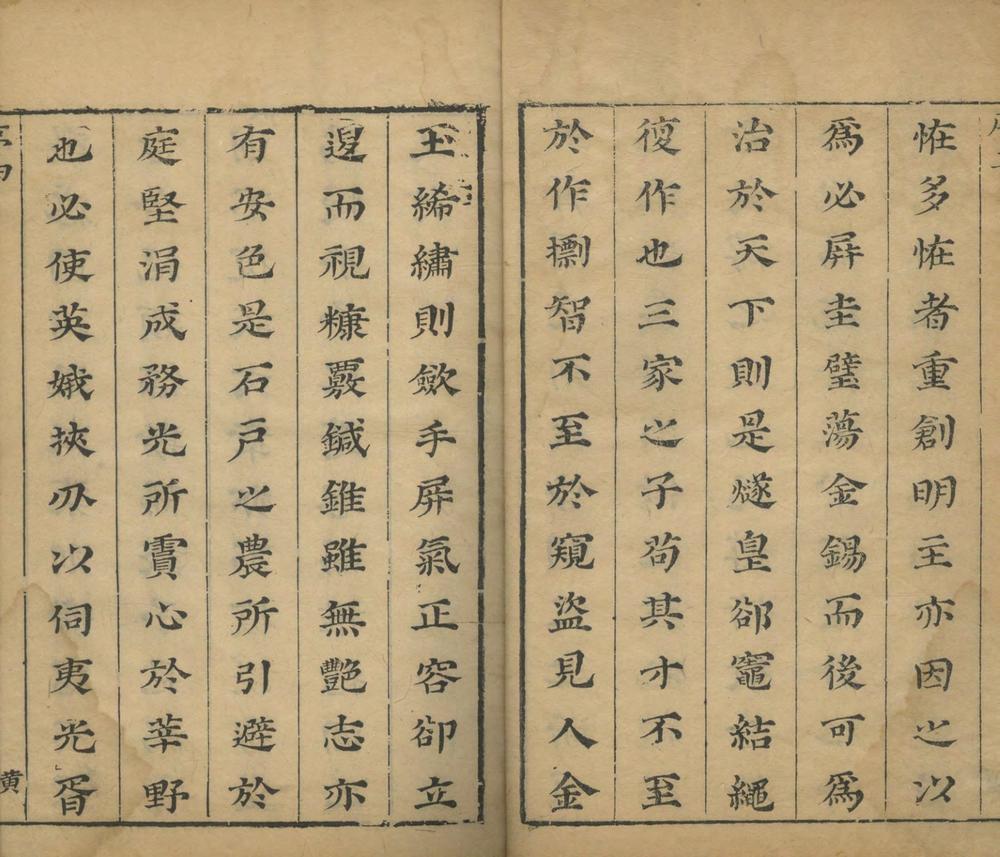 恠多恠者重創明主亦因之以
爲必屏圭璧蕩金錫而後可爲
治於天下則是燧皇郤竈結繩
復作也三家之子苟其才不至
於作摽智不至於窺盜見人金
玉絺繡則歛手屏氣正容卻立
邊而視糠覈鍼錐雖無艷志亦
有安色是石戸之農所引避於
庭堅涓成務光所賣心於莘野
也必使英娥挾刅以伺夷光胥
黄